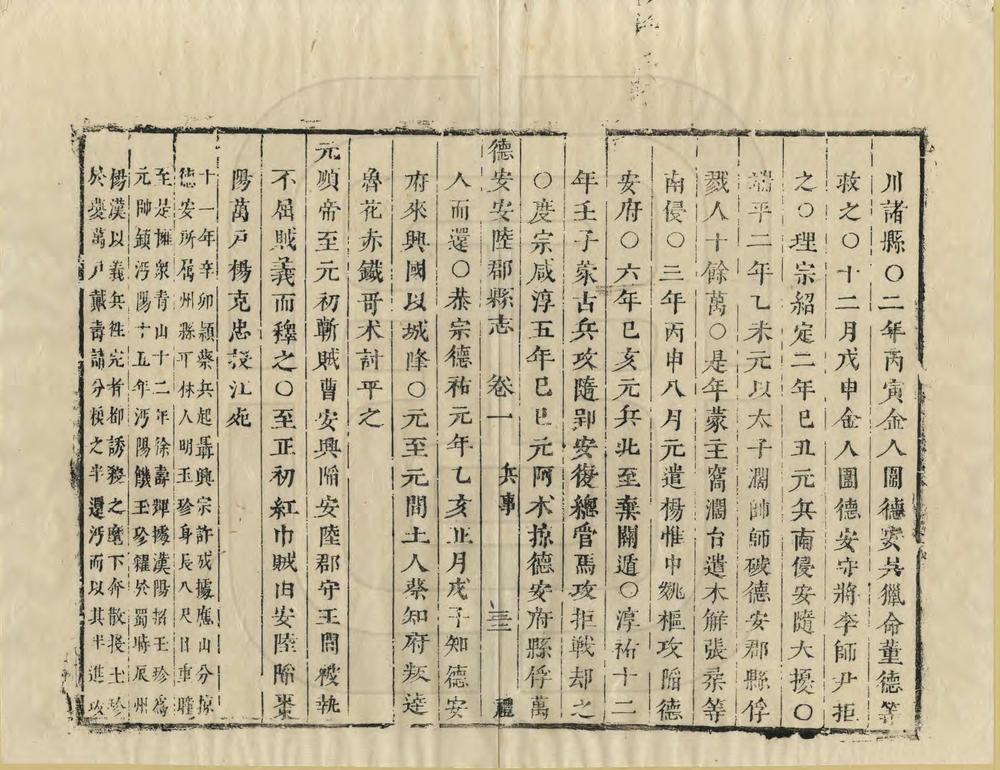 川諸縣〇二年丙寅金人圍德安吳獵命董德等
救之〇十二月戊申金人圍德安守將李師尹拒
之〇理宗紹定二年巳丑元兵南侵安隨大擾〇
端平二年乙未元以太子濶帥師破德安郡縣俘
戮人十餘萬〇是年蒙主窩濶台遣木解張柔等
南侵〇三年丙申八月元遣楊惟中姚樞攻陷德
安府〇六年巳亥元兵北至棄關遁〇淳祐十二
年壬子蒙古兵攻隨郢安復總管馬攻拒戰却之
〇度宗咸淳五年巳巳元阿术掠德安府縣俘萬
德安安陸郡縣志 卷一 兵事 三三 禮
人而還〇恭宗德祐元年乙亥正月戊子知德安
府來興國以城降〇元至元間土人蔡知府叛達
魯花赤鐵哥术討平之
元順帝至元初蘄賊曹安興陷安陸郡守王閏被執
不屈賊義而釋之〇至正初紅巾賊由安陸陷棗
陽萬戸楊克忠投江死
十一年辛卯潁蔡兵起聶興宗許戍據應山分掠
德安所屬州縣平林人明玉珍身長八尺目重瞳
至是擁衆青山十二年徐壽輝據漢陽招玉珍爲
元帥鎮沔陽十五年沔陽饑玉珍糴於蜀時辰州
楊漢以義兵徃完者都誘殺之麾下奔散投玉珍
於夔萬戸戴壽請分糗之半還沔而以其半進攻